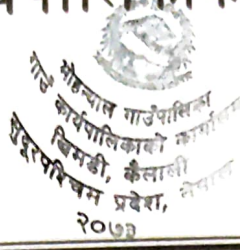 मोहन्याल गाउँपालिका
गाउँ कार्यपालिकाको कार्यालय
खिमडी, कैलाली
सुदूरपश्चिम प्रदेश, नेपाल
२०७३